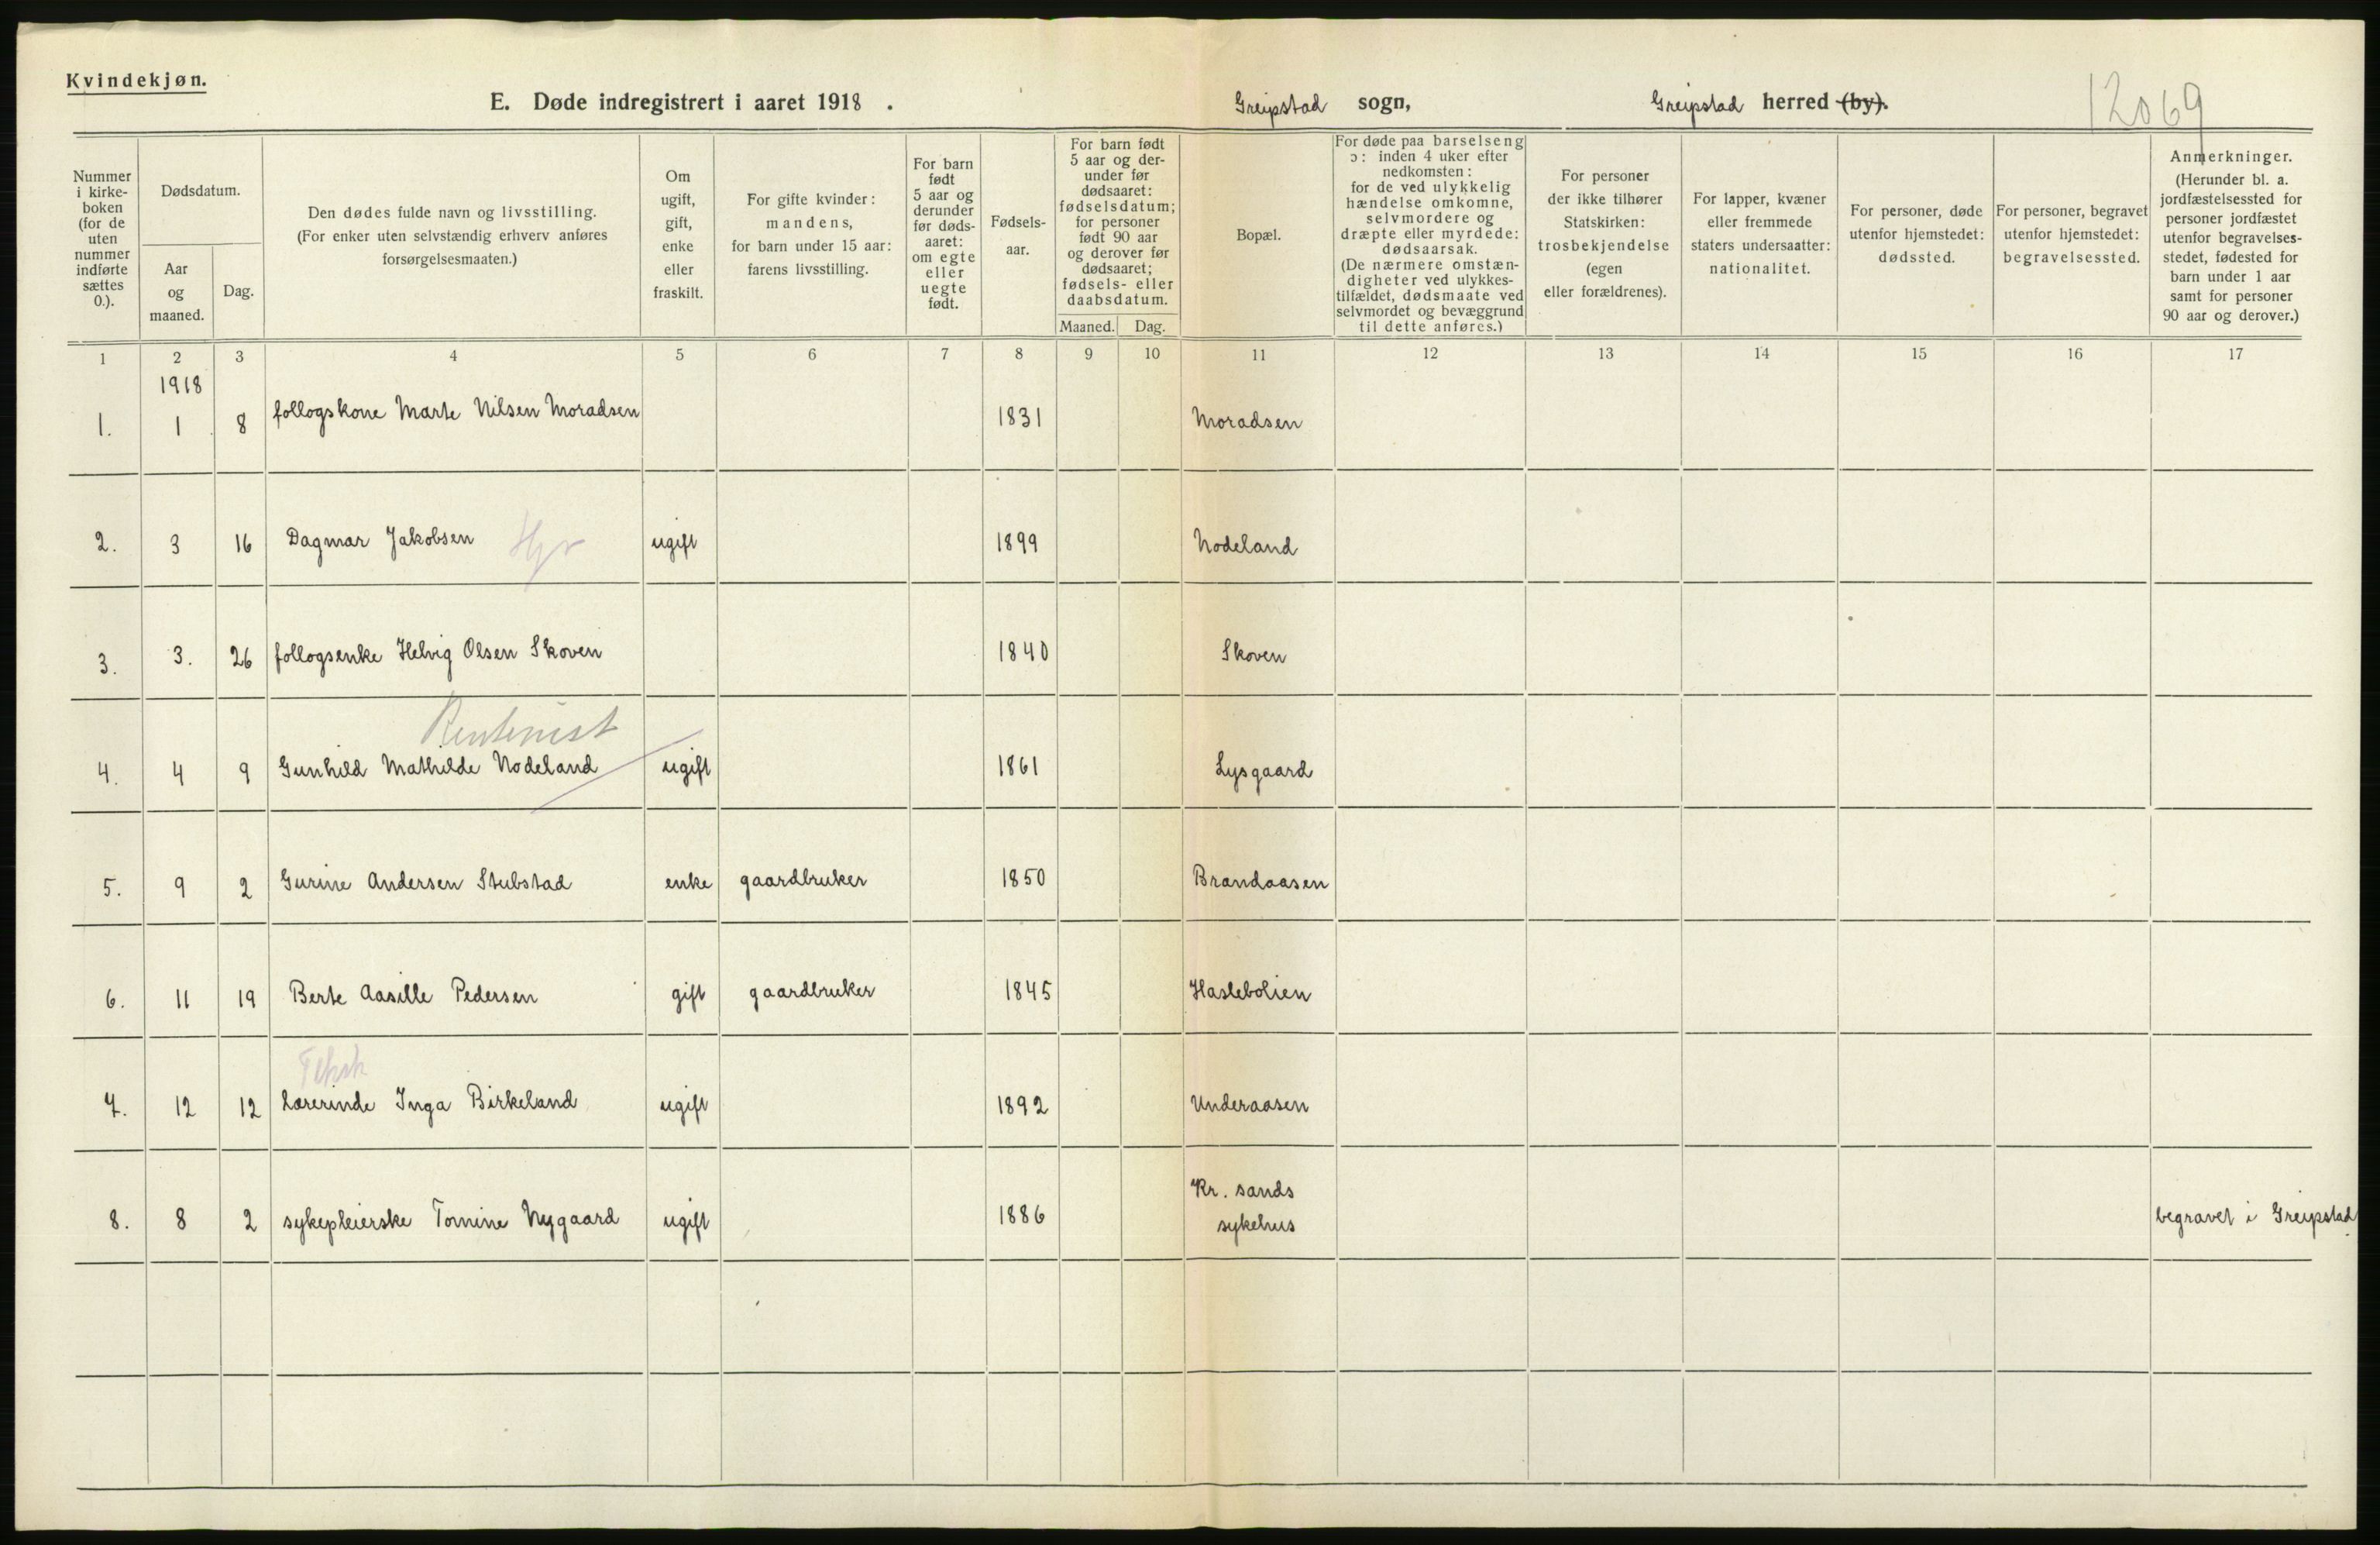 Kvindekjøn.
E. Døde indregistrert i aaret 1918 . Greipstad sogn, Greipstad herred (by). 12069
Nummer i kirkeboken (for de uten nummer indførte sættes 0.).
Dødsdatum.
Aar og maaned.
Dag.
Den dødes fulde navn og livsstilling.
(For enker uten selvstændig erhverv anføres
forsørgelsesmaaten.)
Om ugift, gift, enke eller fraskilt.
For gifte kvinder: mandens, for barn under 15 aar: farens livsstilling.
For barn født 5 aar og derunder før dødsaaret: om egte eller uegte født.
Fødselsaar.
For barn født 5 aar og derunder før dødsaaret: fødselsdatum; for personer født 90 aar og derover før dødsaaret; fødsels- eller daabsdatum.
Maaned. Dag.
Bopæl.
For døde paa barselseng ɔ: inden 4 uker efter nedkomsten: for de ved ulykkelig hændelse omkomne, selvmordere og dræpte eller myrdede: dødsaarsak. (De nærmere omstændigheter ved ulykkestilfældet, dødsmaate ved selvmordet og bevæggrund til dette anføres.)
For personer der ikke tilhører Statskirken: trosbekjendelse (egen eller forældrenes).
For lapper, kvæner eller fremmede staters undersaatter: nationalitet.
For personer, døde utenfor hjemstedet: dødssted.
For personer, begravet utenfor hjemstedet: begravelsessted.
Anmerkninger. (Herunder bl. a. jordfæstelsessted for personer jordfæstet utenfor begravelsesstedet, fødested for barn under 1 aar samt for personer 90 aar og derover.)
1 2 3 4 5 6 7 8 9 10 11 12 13 14 15 16 17
1918
1. 1 8 follogskone Marte Nilsen Moradsen 1831 Moradsen
2. 3 16 Dagmar Jakobsen ugift 1899 Nodeland
3. 3. 26 follogsenke Helvig Olsen Skoven 1840 Skoven
Rentenist
4. 4 9 Gunhild Mathilde Nodeland ugift 1861 Lysgaard
5. 9 2 Gurine Andersen Stubstad enke gaardbruker 1850 Brandaasen
6. 11 19 Berte Aasille Pedersen gift gaardbruker 1845 Haslebolien
7. 12 12 Lærerinde Inga Birkeland ugift 1892 Underaasen
8. 8 2 sykepleierske Tomine Nygaard ugift 1886 Kr. sands sykehus begravet i Greipstad.